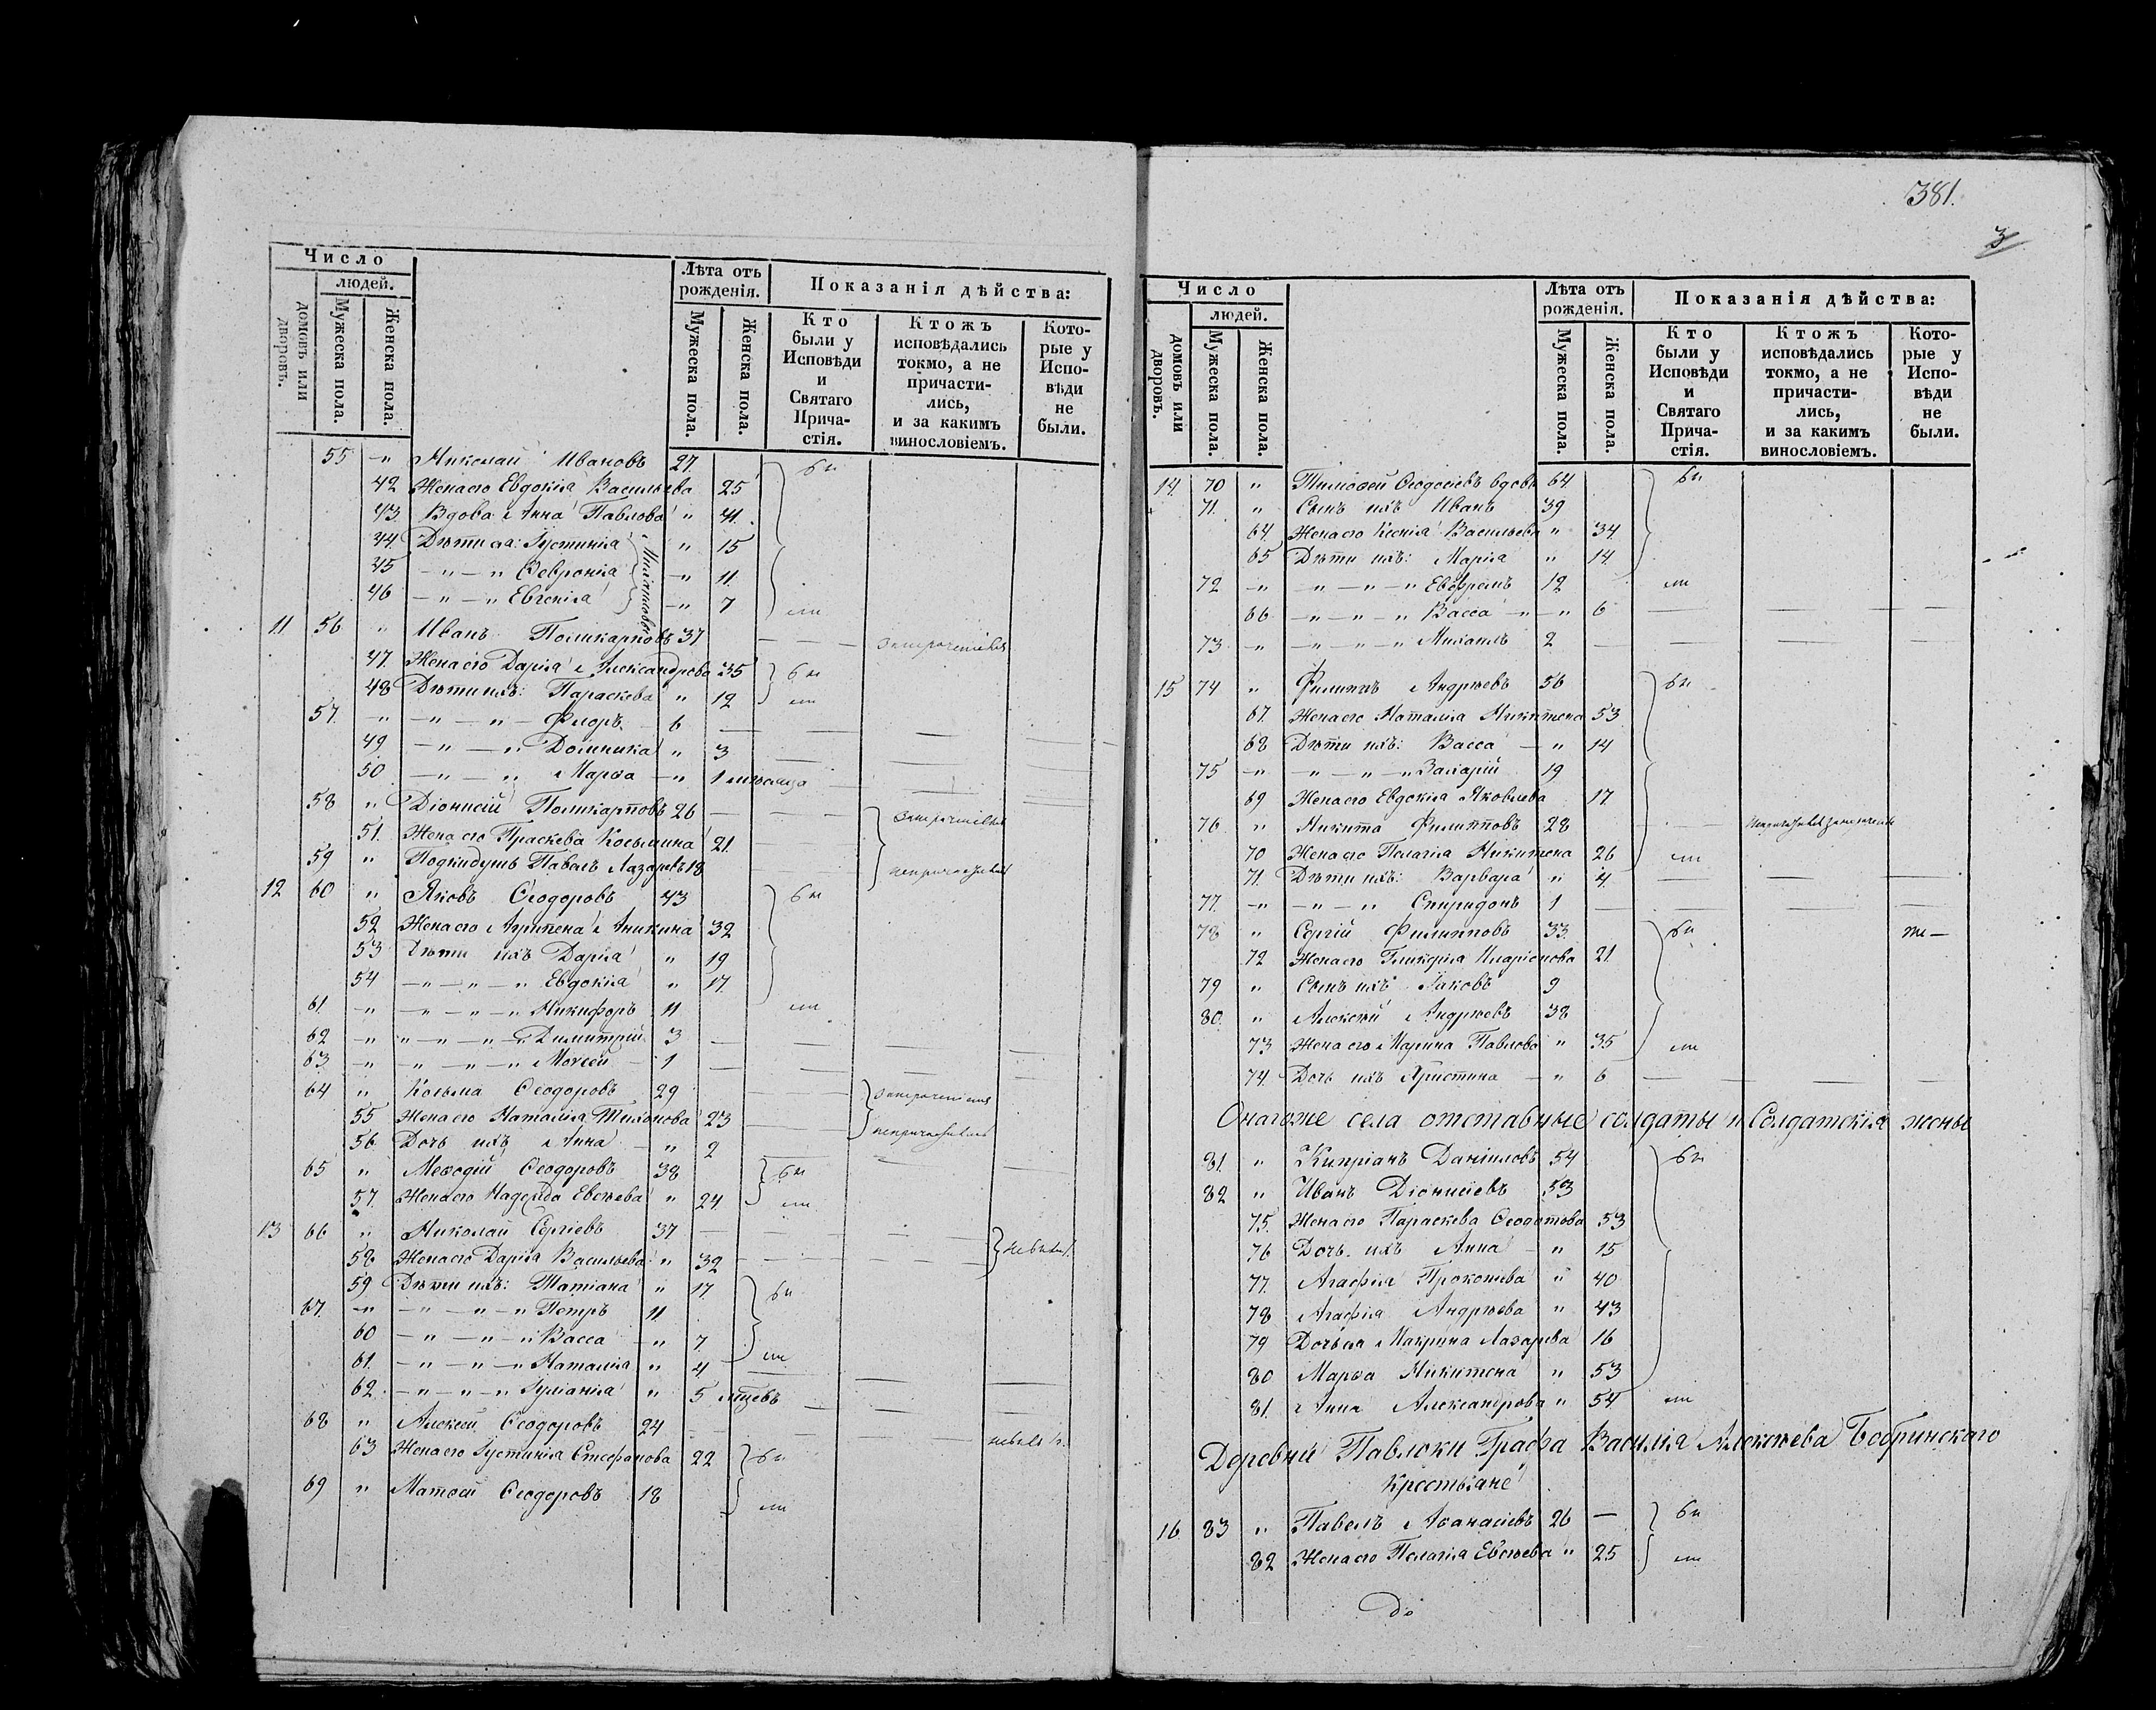 Число
людей.
домовъ или дворовъ.
Мужеска пола.
Женска пола.
Лѣта отъ рожденія.
Мужеска пола.
Женска пола.
Показанія дѣйства:
Кто были у Исповѣди и Святаго Прича-стія.
Ктожъ исповѣдались токмо, а не причасти-лись, и за какимъ винословіемъ.
Кото-рые у Испо-вѣди не были.
55 -"- Николай Ивановъ 27. бы
42 Жена его Евдокія Васильева 25
43. Вдова Анна Павлова " 41.
44. Дѣти ея: Іустинія " 15
45 -"-" Февронія -" 11.
46 -"-" Евгенія -" 7 ли
11 56 " Иванъ Поликарповъ 37
47. Жена его Дарія Александрова 35 бы
48 Дѣти ихъ: Параскева " 12 ли
57. -"- -"-"- Флоръ 6
49 -"-" Домника " 3
50 -"-" Марѳа -" 1 мѣсяца
58 " Діонисій Поликарповъ 26
51. Жена его Праскева Косьмина 21.
59 " Подкидушъ Павелъ Лазаревъ 18
12 60 " Яковъ Ѳеодоровъ 43 бы
52 Жена его Агрипена Аникина 32
53 Дѣти ихъ Дарія " 19
54 -"-"-" Евдокія " 17.
61. -"- -"-"-" Никифоръ 11 ли
62 -"- "-"-"-" Димитрій 3
63. -"- "-"-"-" Моѵсей 1
64 " Косьма Ѳеодоровъ 29
55 Жена его Наталія Тихонова 23
56 Дочь ихъ Анна " 2
65 " Меѳодій Ѳеодоровъ 38 бы
57. Жена его Надежда Евсѣева " 24. ли
13 66 " Николай Сергіевъ 37
58 Жена его Дарія Васильева " 32
59 Дѣти ихъ: Татіана " 17. бы
67. -"- -"-"-" Петръ 11
60 -"-"-" Васса -" 7.
61. -"-"-" Наталія " 4 ли
62. -"-"-" Іуліанія " 5 мцевъ
68 " Алексей Ѳеодоровъ 24
63 Жена его Іустинія Стефанова 22 бы
69 " Матѳей Ѳеодоровъ 18 ли
381.
3
Число
людей.
домовъ или дворовъ.
Мужеска пола.
Женска пола.
Лѣта отъ рожденія.
Мужеска пола.
Женска пола.
Показанія дѣйства:
Кто были у Исповѣди и Святаго Прича-стія.
Ктожъ исповѣдались токмо, а не причасти-лись, и за какимъ винословіемъ.
Кото-рые у Испо-вѣди не были.
14. 70 " Тимоѳей Ѳеодосіевъ вдовъ 64 бы
71. " Сынъ ихъ Иванъ 39
64. Жена его Ксенія Васильева " 34.
65 Дѣти ихъ: Марія " 14.
72 -"- -"-"-" Евфремъ 12 ли
66 -"-"-" Васса -"-" 6
73. -"- -"-"-" Михаилъ 2
15 74 " Филиппъ Андреевъ 56 бы
67. Жена его Наталія Никитена 53
68 Дѣти ихъ: Васса -" 14
75 -"- -"-"-" Захарій 19
69 Жена его Евдокія Яковлева 17.
76. " Никита Филипповъ 28
70 Жена его Пелагія Никитена 26 ли
71. Дѣти ихъ: Варвара " 4.
77. -"- -"-" Спиридонъ 1
78 " Сергій Филипповъ 33. бы
72 Жена его Гликерія Иларіонова 21.
79 " Сынъ ихъ Іаковъ 9
80. " Алексѣй Андреевъ 38
73 Жена его Марина Павлова " 35 ли
74. Дочь ихъ Христина -" 6
Онагоже села отставные солдаты и Солдатскія жены
81. " Кипріанъ Даніиловъ 54 бы
82 " Иванъ Діонисіевъ 53
75. Жена его Параскева Ѳеодотова 53
76 Дочь ихъ Анна -" 15
77. Агафія Прокопіева " 40
78 Агафія Андреева " 43
79 Дочь ея Макрина Лазарева 16
80 Марѳа Никитена " 53
81. Анна Александрова " 54 ли
Деревни Павлоки Графа Василія Алексѣева Бобринскаго
Крестьяне
16. 83 " Павелъ Аѳанасіевъ 26 — бы
82 Жена его Пелагія Евсѣева " 25 ли